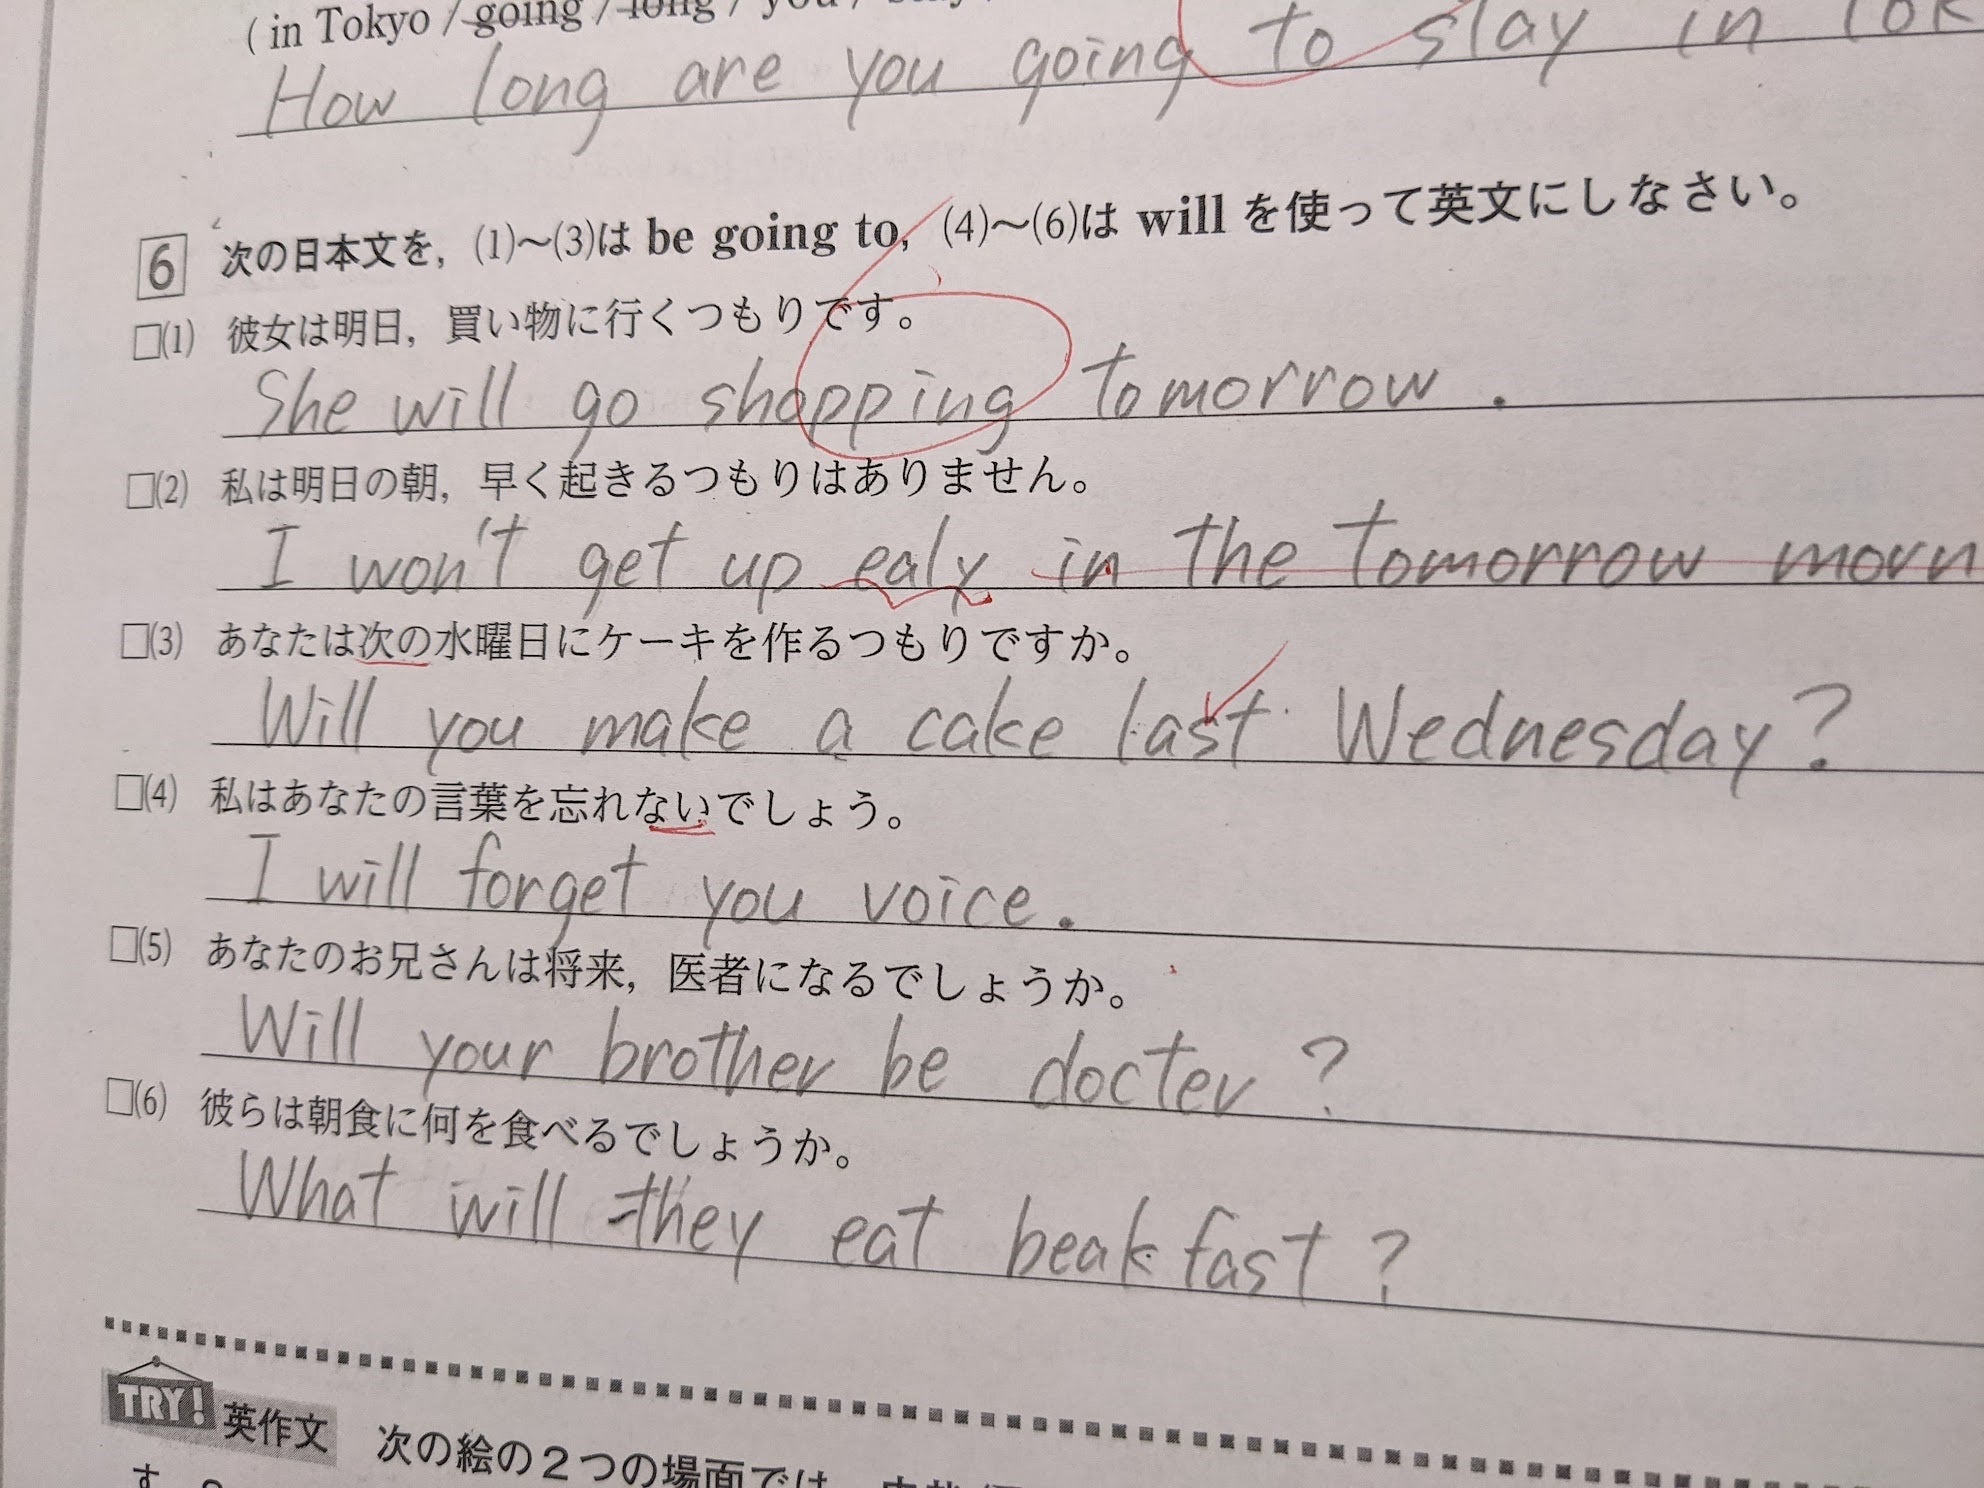 ( in Tokyo / going / long / you /
How long are you going to stay in
6 次の日本文を，(1)～(3)は be going to，(4)～(6)は will を使って英文にしなさい。
□(1) 彼女は明日，買い物に行くつもりです。
She will go shopping tomorrow .
□(2) 私は明日の朝，早く起きるつもりはありません。
I won't get up ealy in the tomorrow morn
□(3) あなたは次の水曜日にケーキを作るつもりですか。
Will you make a cake last Wednesday?
□(4) 私はあなたの言葉を忘れないでしょう。
I will forget you voice.
□(5) あなたのお兄さんは将来，医者になるでしょうか。
Will your brother be docter ?
□(6) 彼らは朝食に何を食べるでしょうか。
What will they eat beakfast ?
TRY! 英作文 次の絵の2つの場面では，